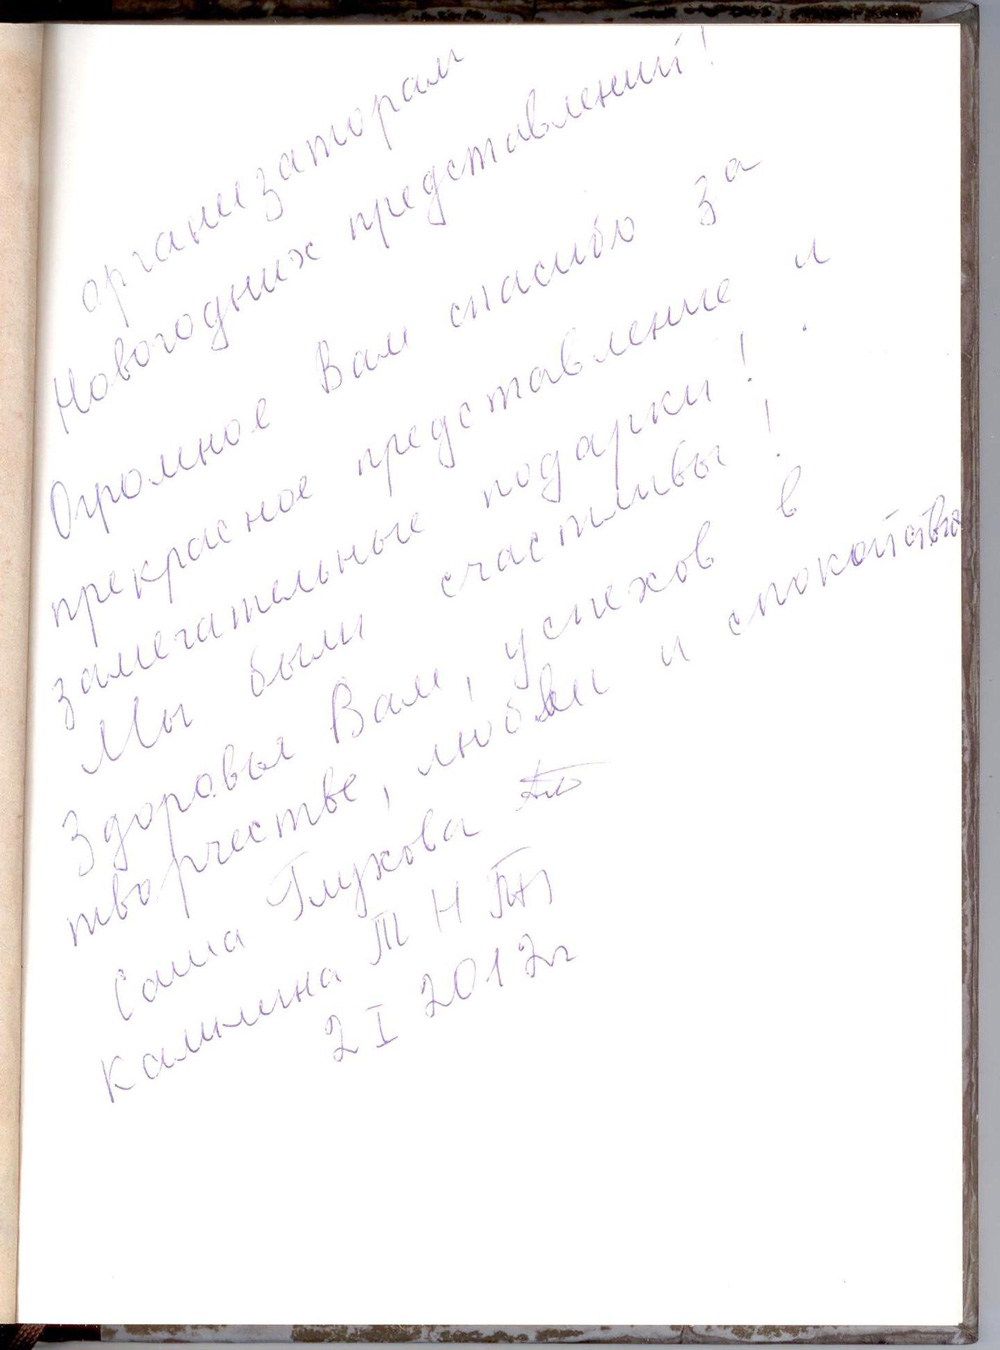 организаторам
Новогодних представлений!
Огромное Вам спасибо за
прекрасное представление и
замечательные подарки!
Мы были счастливы!
Здоровья Вам, успехов в
творчестве, любви и спокойствия
Саша Глухова
Калинина Т Н
2 I 2012г